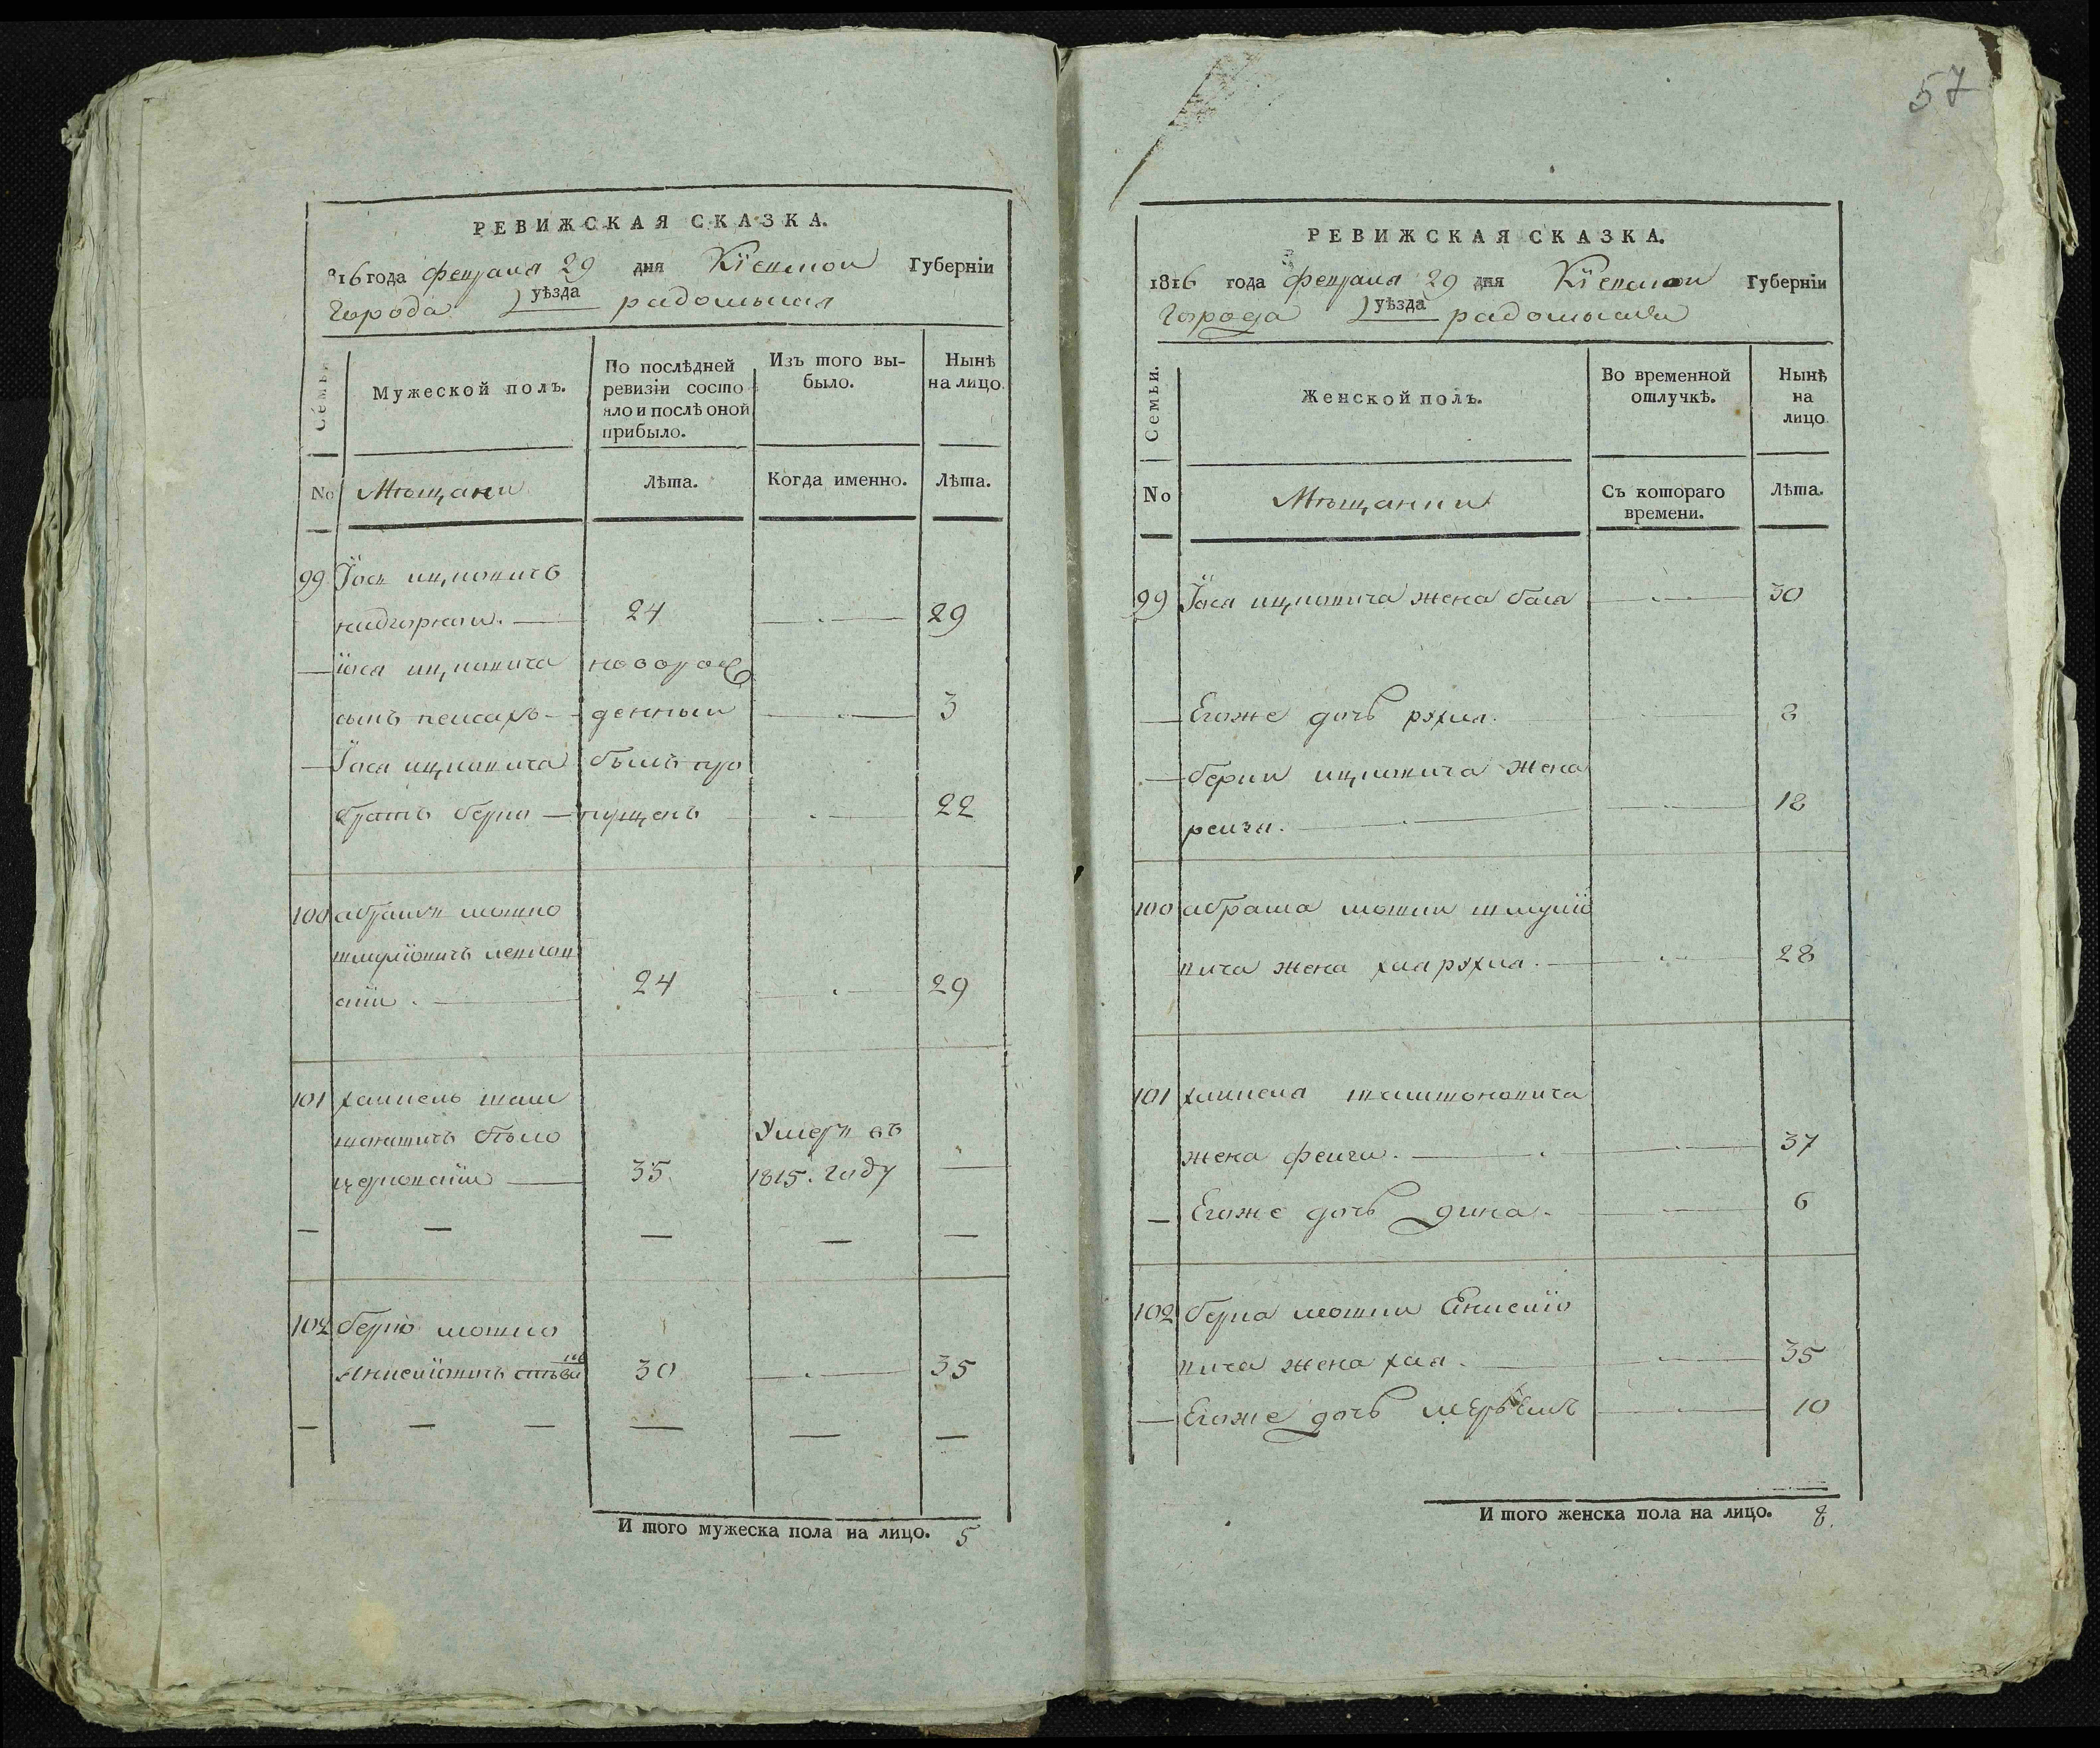 РЕВИЖСКАЯ СКАЗКА.
816 года февраля 29 дня Кїевской Губернїи
Города уѣзда радомысля
Семьи
Мужеской полъ.
По послѣдней ревизїи состо
яло и послѣ оной
прибыло.
Изъ того вы-
было.
Нынѣ
на лицо.
No Мѣщани
Лѣта.
Когда именно.
Лѣта.
99 Їося ицковичъ
24 29
Їося ицковича новорож
сынъ пейсахъ денный 3
Їося ицковича былъ про
братъ берко пущенъ 22
100 абрамъ мошко
шмулїовичъ
24 29
101
Умеръ въ
35 1815. году
102 берко мошко
30 35
И того мужеска пола на лицо. 5
57
РЕВИЖСКАЯ СКАЗКА.
1816 года февраля 29 дня Кїевской Губернїи
Города уѣзда радомысля
Семьи.
Женской полъ.
Во временной
отлучкѣ.
Нынѣ
на
лицо
No Мѣщанки
Съ котораго
времени.
Лѣта.
99 Їося ицковича жена бася 30
Егоже дочь рухля. 8
берки ицковича жена
рейзя. 18
100 абрама мошки шмулїо
вича жена хая рухля. 28
101
жена фейга. 37
Егоже дочь дина. 6
102 берка мошки
вича жена хая. 35
Егоже дочь 10
И того женска пола на лицо. 8.